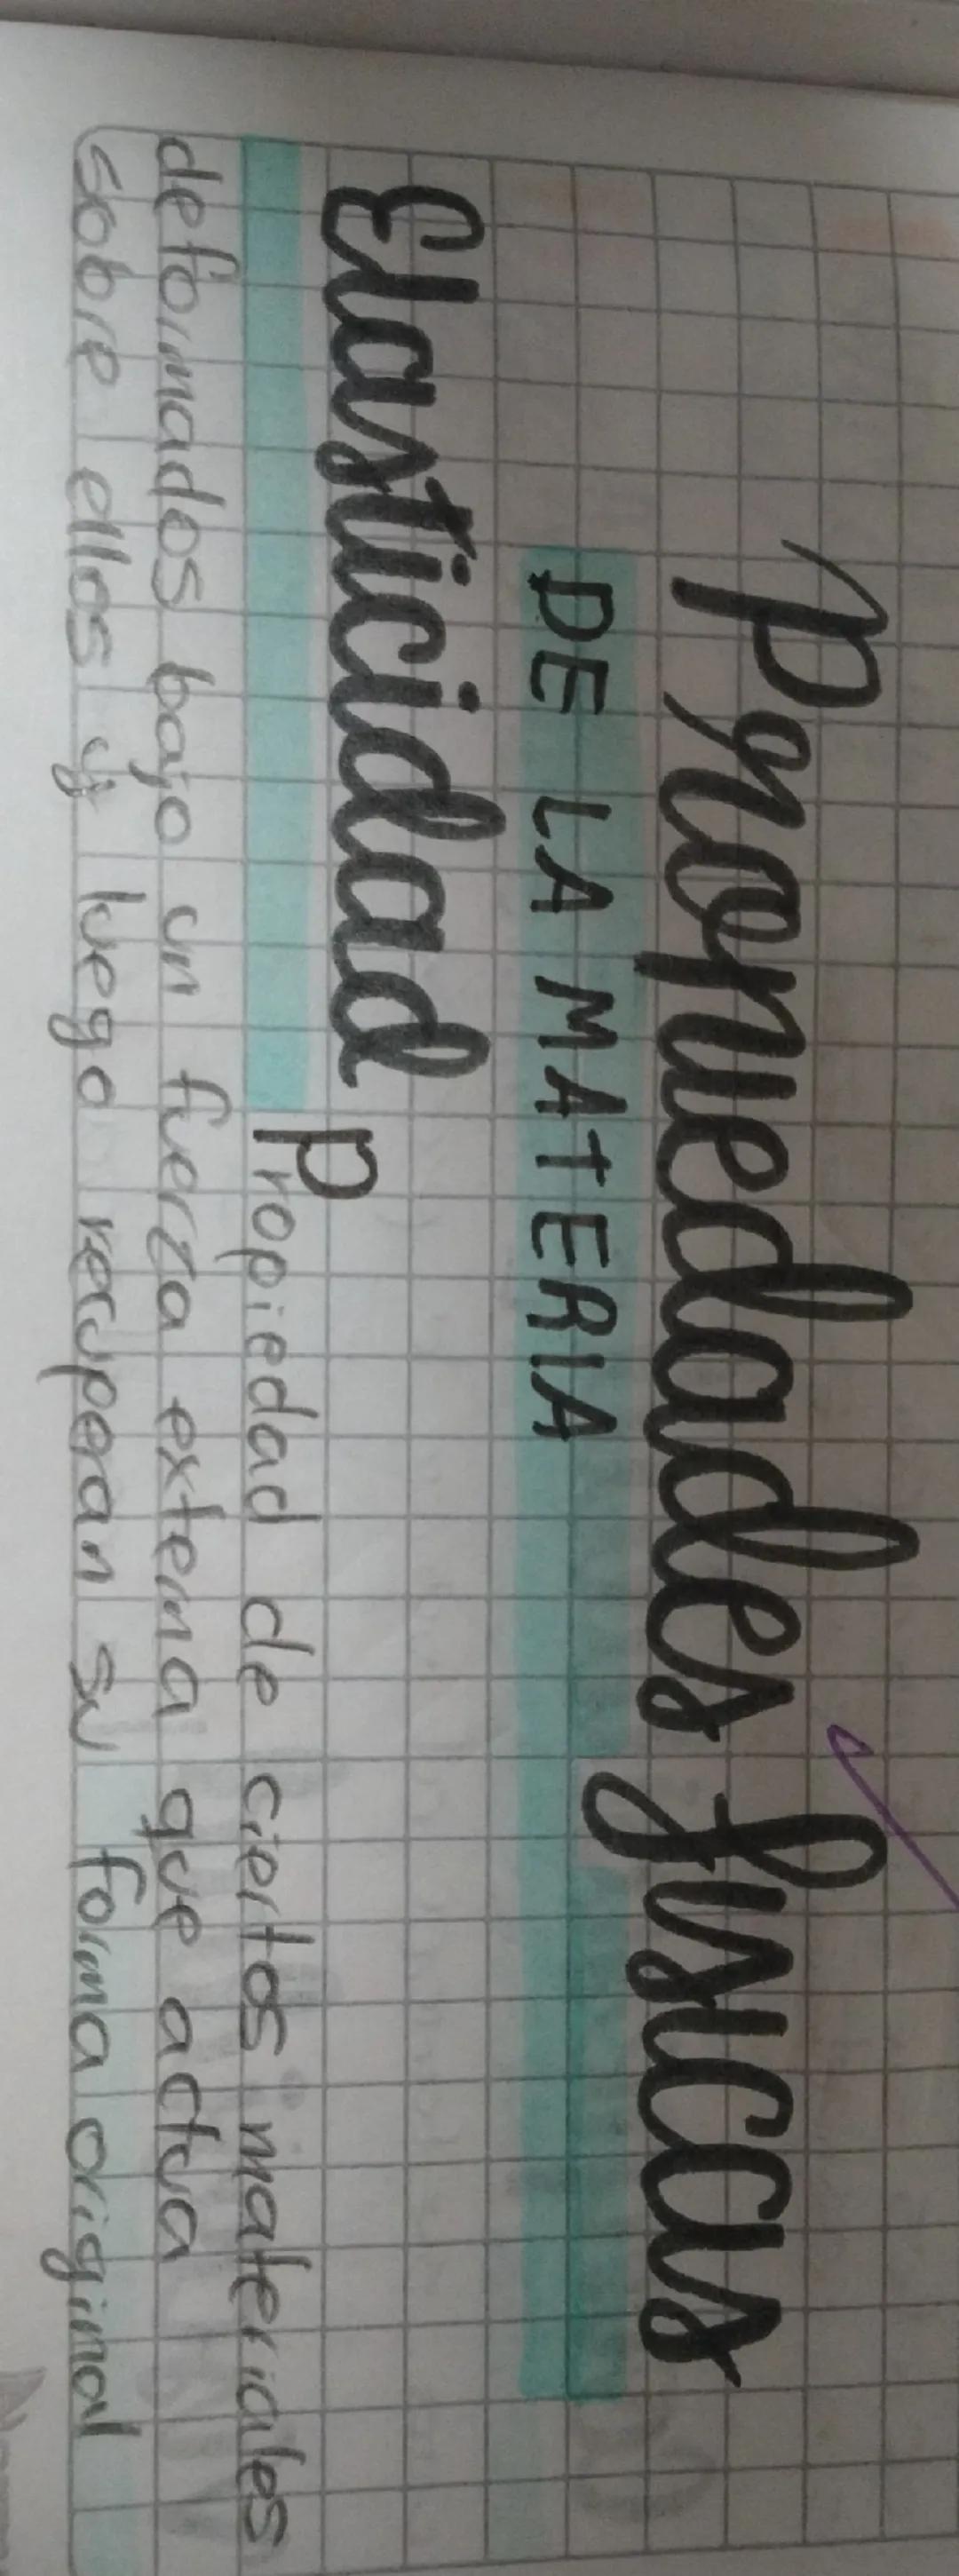 Propiedades fisicas
DE LA MATERIA
Elasticidad
Propiedad de ciertos materiales
deformados bajo un fuerza externa que actua
sobre ellos y luego recuperan su forma original